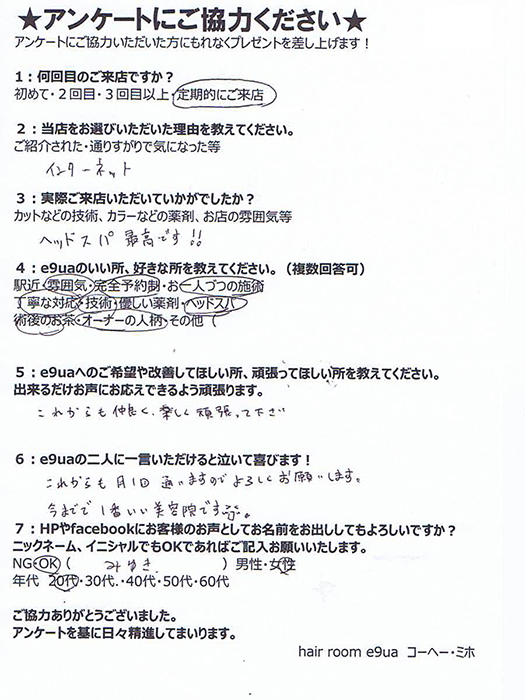 ★アンケートにご協力ください★
アンケートにご協力いただいた方にもれなくプレゼントを差し上げます！
1：何回目のご来店ですか？
初めて・２回目・３回目以上・定期的にご来店
２：当店をお選びいただいた理由を教えてください。
ご紹介された・通りすがりで気になった等
インターネット
３：実際ご来店いただいていかがでしたか？
カットなどの技術、カラーなどの薬剤、お店の雰囲気等
ヘッドスパ 最高です!!
４：e9uaのいい所、好きな所を教えてください。（複数回答可）
駅近・雰囲気・完全予約制・お一人づつの施術
丁寧な対応・技術・優しい薬剤・ヘッドスパ
術後のお茶・オーナーの人柄・その他（
５：e9uaへのご希望や改善してほしい所、頑張ってほしい所を教えてください。
出来るだけお声にお応えできるよう頑張ります。
これからも仲良く、楽しく頑張って下さい
６：e9uaの二人に一言いただけると泣いて喜びます！
これからも月1回通いますのでよろしくお願いします。
今までで1番いい美容院です
７：HPやfacebookにお客様のお声としてお名前をお出ししてもよろしいですか？
ニックネーム、イニシャルでもOKであればご記入お願いいたします。
NG・OK（ みゆき ）男性・女性
年代 20代・30代.・40代・50代・60代
ご協力ありがとうございました。
アンケートを基に日々精進してまいります。
hair room e9ua コーヘー・ミホ